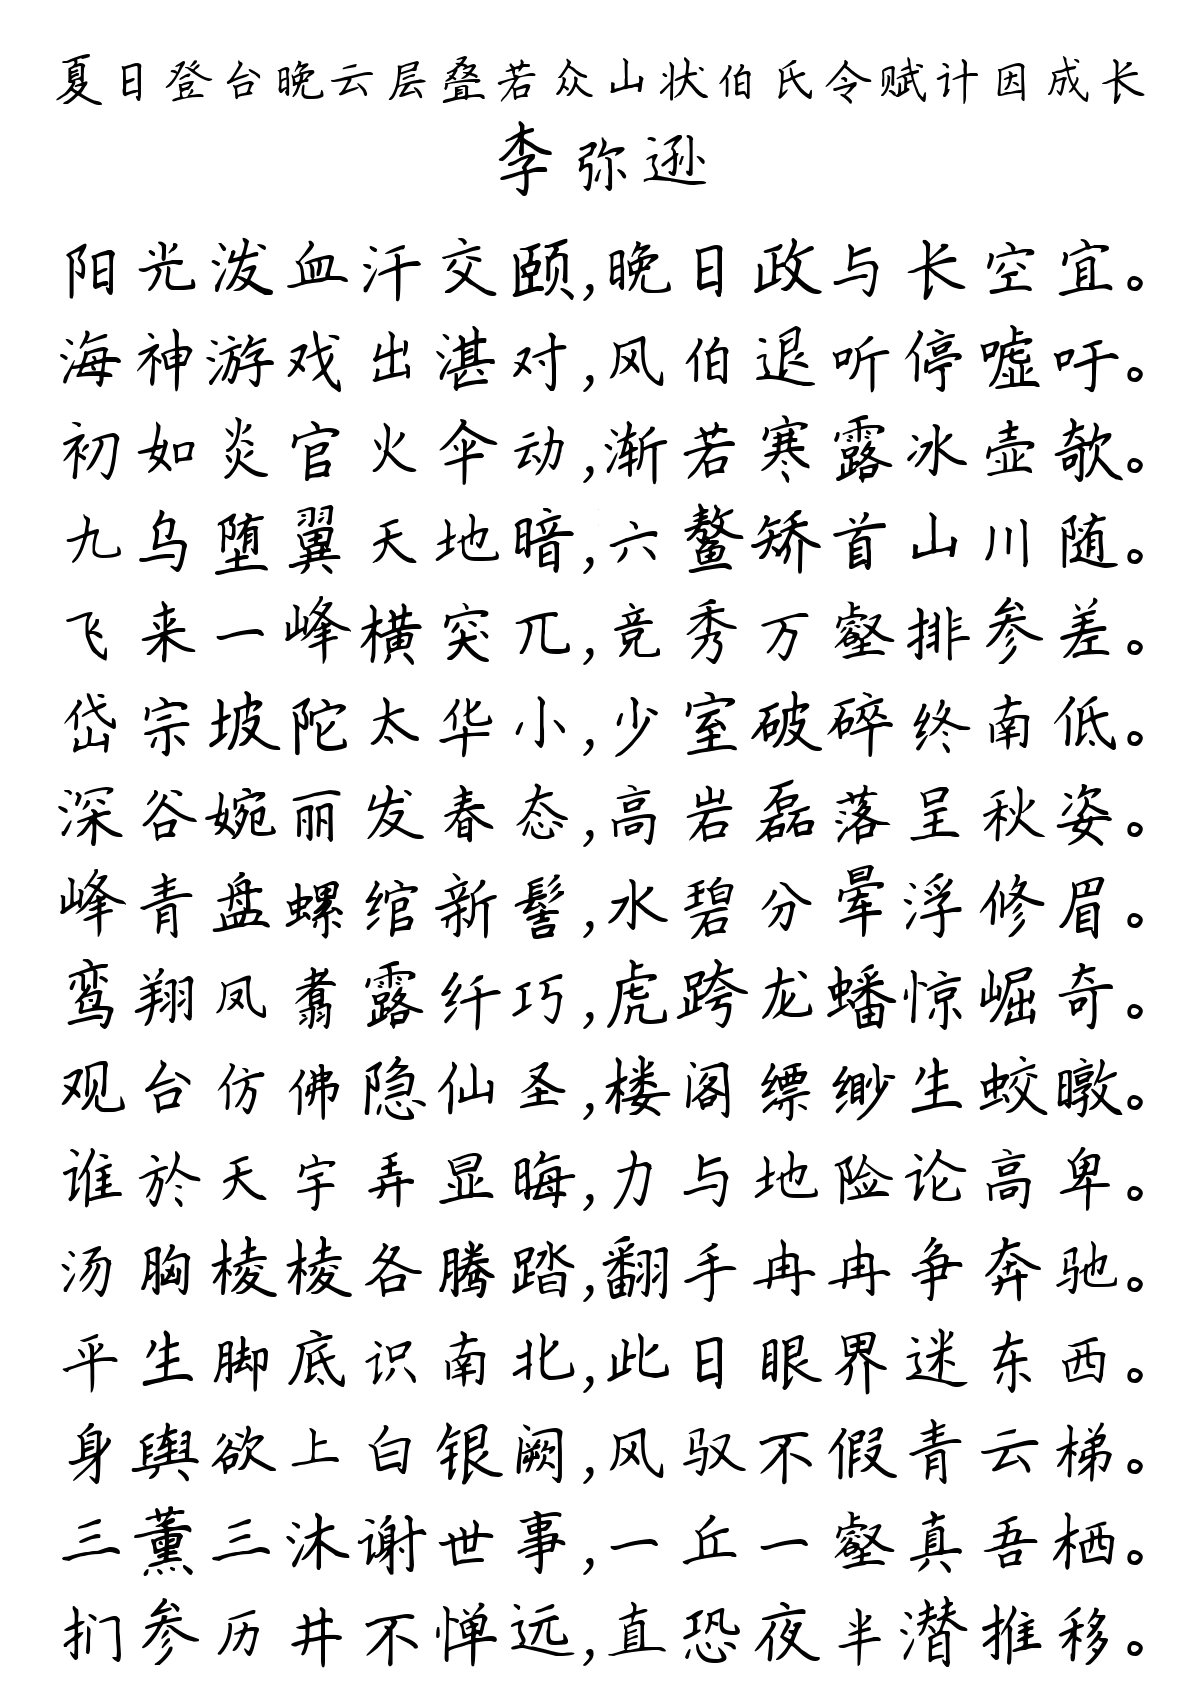 夏日登台晚云层叠若众山状伯氏令赋计因成长
李弥逊
阳光泼血汗交颐,晚日政与长空宜。
海神游戏出湛对,风伯退听停嘘吁。
初如炎官火伞动,渐若寒露冰壶欹。
九乌堕翼天地暗,六鳌矫首山川随。
飞来一峰横突兀,竞秀万壑排参差。
岱宗坡陀太华小,少室破碎终南低。
深谷婉丽发春态,高岩磊落呈秋姿。
峰青盘螺绾新髻,水碧分晕浮修眉。
鸾翔凤翥露纤巧,虎跨龙蟠惊崛奇。
观台仿佛隐仙圣,楼阁缥缈生蛟暾。
谁於天宇弄显晦,力与地险论高卑。
汤胸棱棱各腾踏,翻手冉冉争奔驰。
平生脚底识南北,此日眼界迷东西。
身舆欲上白银阙,风驭不假青云梯。
三薰三沐谢世事,一丘一壑真吾栖。
扪参历井不惮远,直恐夜半潜推移。